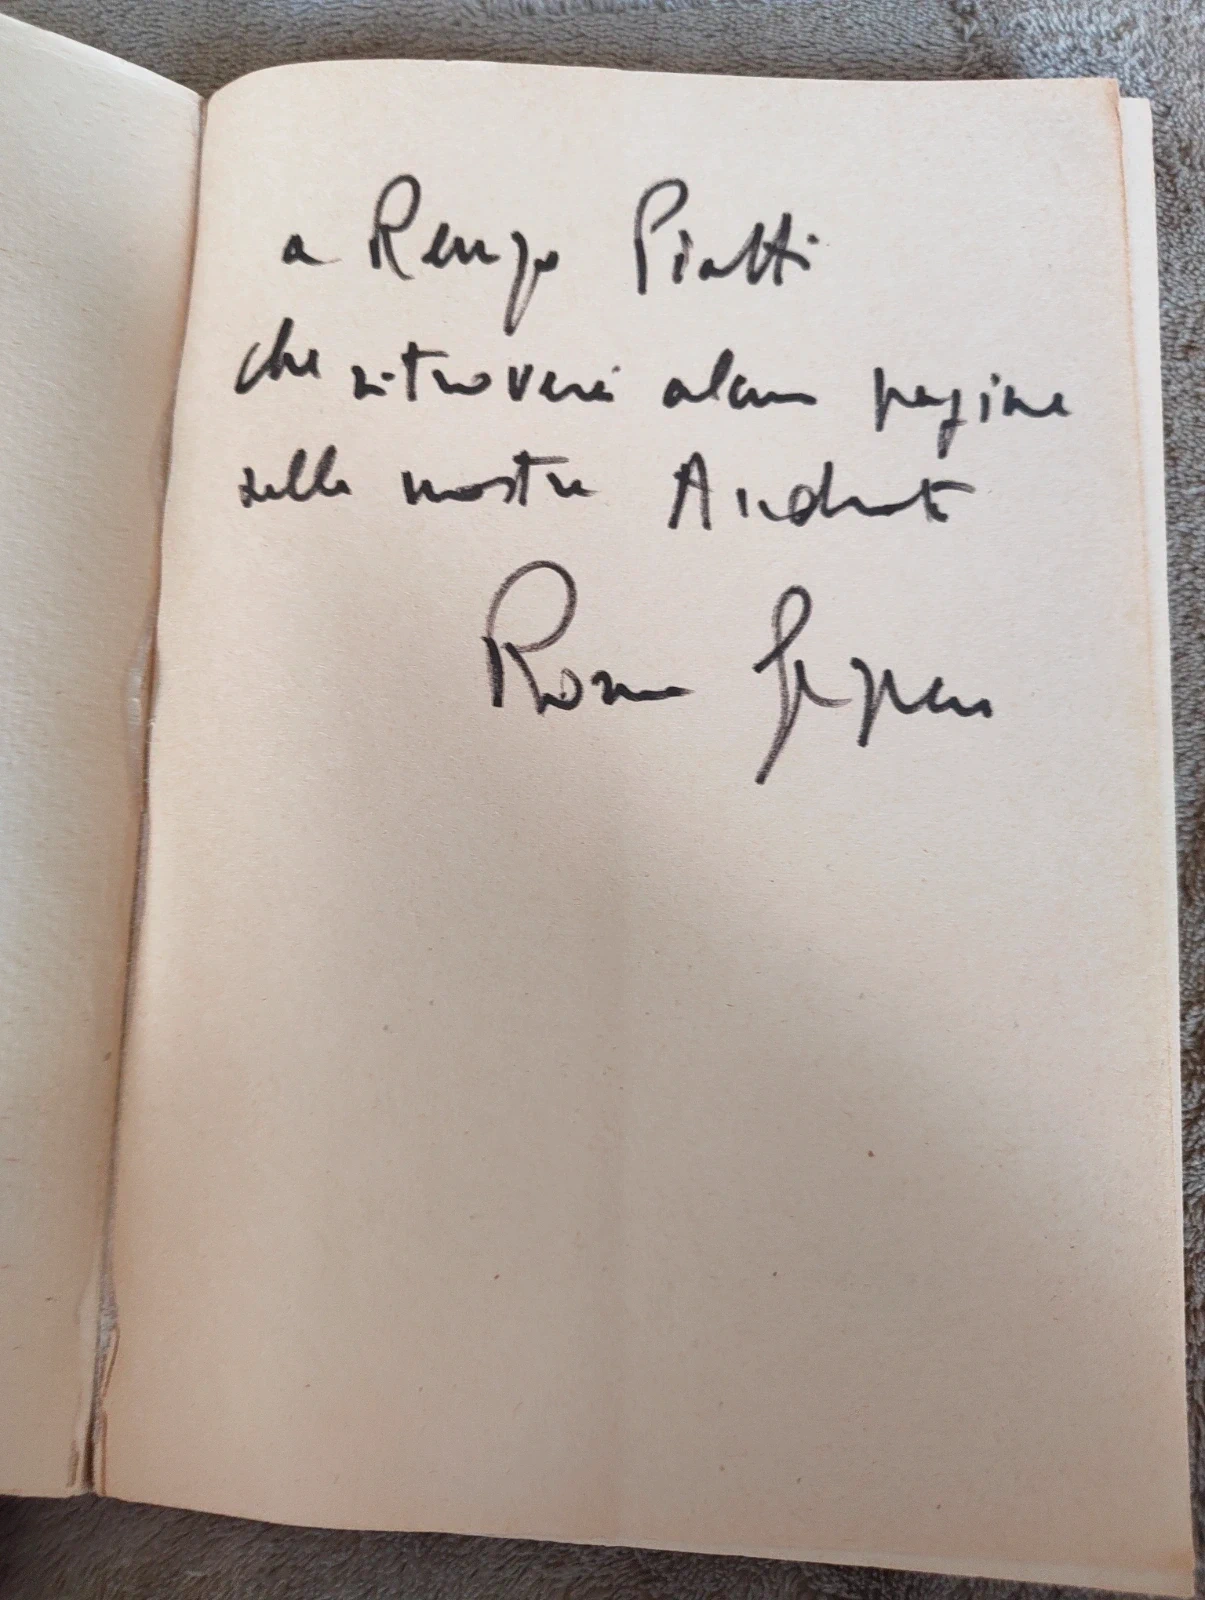 a Renzo Piatti
che ritroverà alcune pagine
della nostra Andrate
Romano